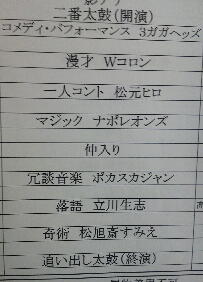 二番太鼓(開演)
コメディ・パフォーマンス 3ガガヘッズ
漫才 Wコロン
一人コント 松元ヒロ
マジック ナポレオンズ
仲入り
冗談音楽 ポカスカジャン
落語 立川生志
奇術 松旭斎すみえ
追い出し太鼓(終演)